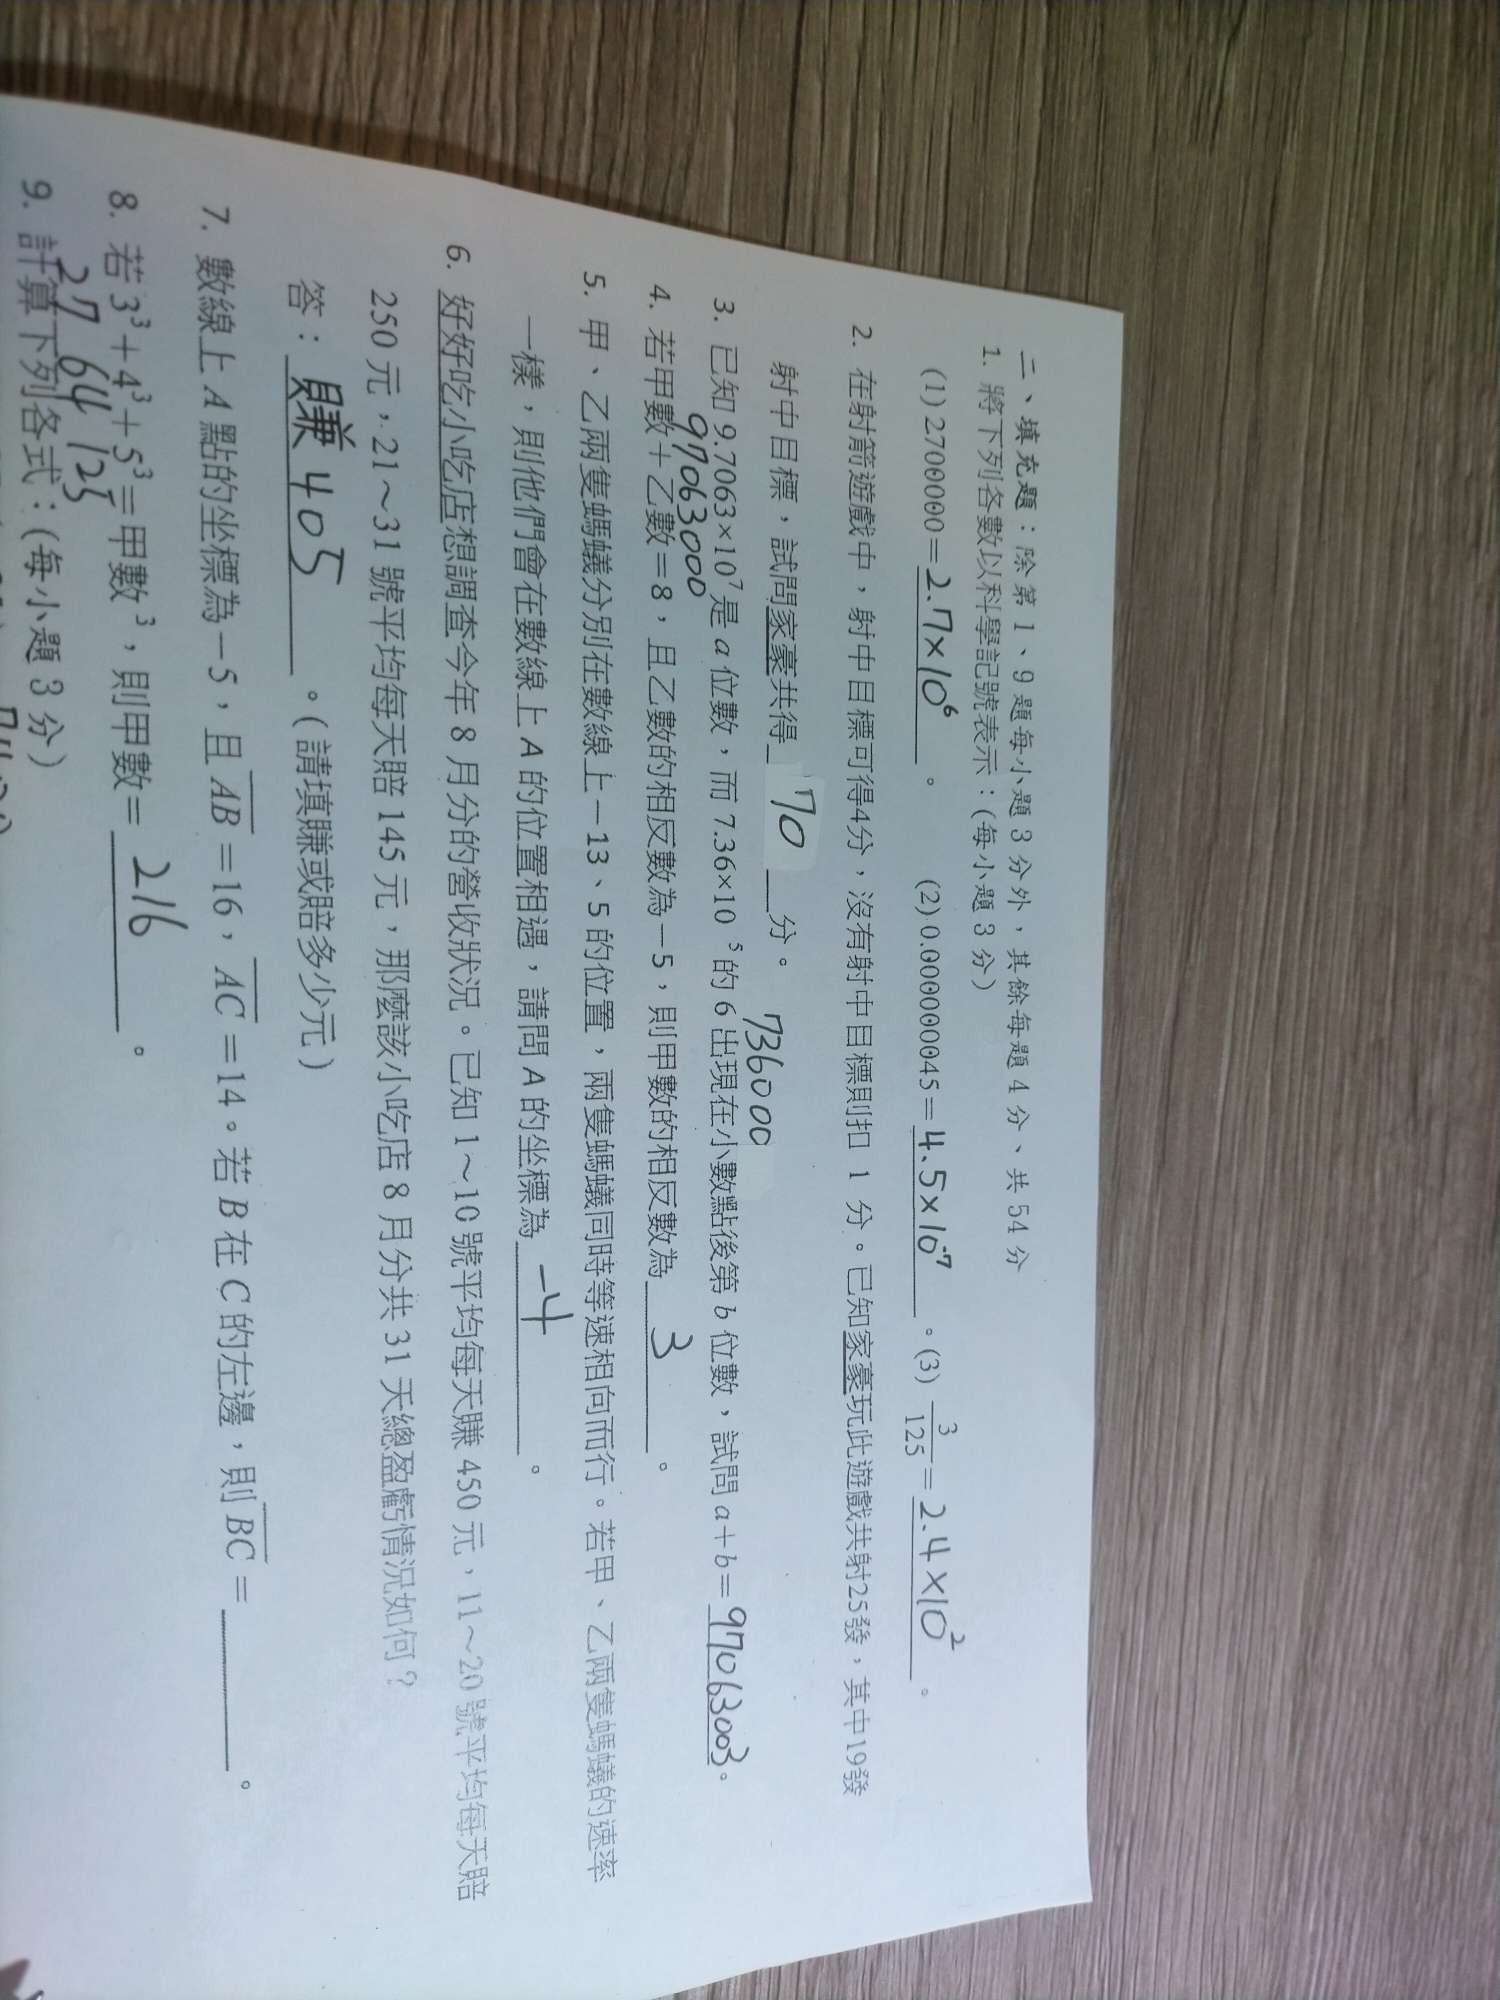 二、填充題：除第 1、9 題每小題 3 分外，其餘每題 4 分、共 54 分
1. 將下列各數以科學記號表示：(每小題 3 分)
(1) 2700000＝2.7×10⁶。 (2) 0.00000045＝4.5×10⁻⁷。 (3) 3/125＝2.4×10²。
2. 在射箭遊戲中，射中目標可得4分，沒有射中目標則扣 1 分。已知家豪玩此遊戲共射25發，其中19發
射中目標，試問家豪共得 70 分。
736000
3. 已知 9.7063×10⁷是 a 位數，而 7.36×10⁵的 6 出現在小數點後第 b 位數，試問 a＋b＝97063003。
97063000
4. 若甲數＋乙數＝8，且乙數的相反數為－5，則甲數的相反數為 3 。
5. 甲、乙兩隻螞蟻分別在數線上－13、5 的位置，兩隻螞蟻同時等速相向而行。若甲、乙兩隻螞蟻的速率
一樣，則他們會在數線上 A 的位置相遇，請問 A 的坐標為 －4 。
6. 好好吃小吃店想調查今年 8 月分的營收狀況。已知 1～10 號平均每天賺 450 元，11～20 號平均每天賠
250 元，21～31 號平均每天賠 145 元，那麼該小吃店 8 月分共 31 天總盈虧情況如何？
答：賺405。(請填賺或賠多少元)
7. 數線上 A 點的坐標為－5，且 AB＝16，AC＝14。若 B 在 C 的左邊，則 BC＝ 。
8. 若 3³＋4³＋5³＝甲數³，則甲數＝216。
27 64 125
9. 計算下列各式：(每小題 3 分)